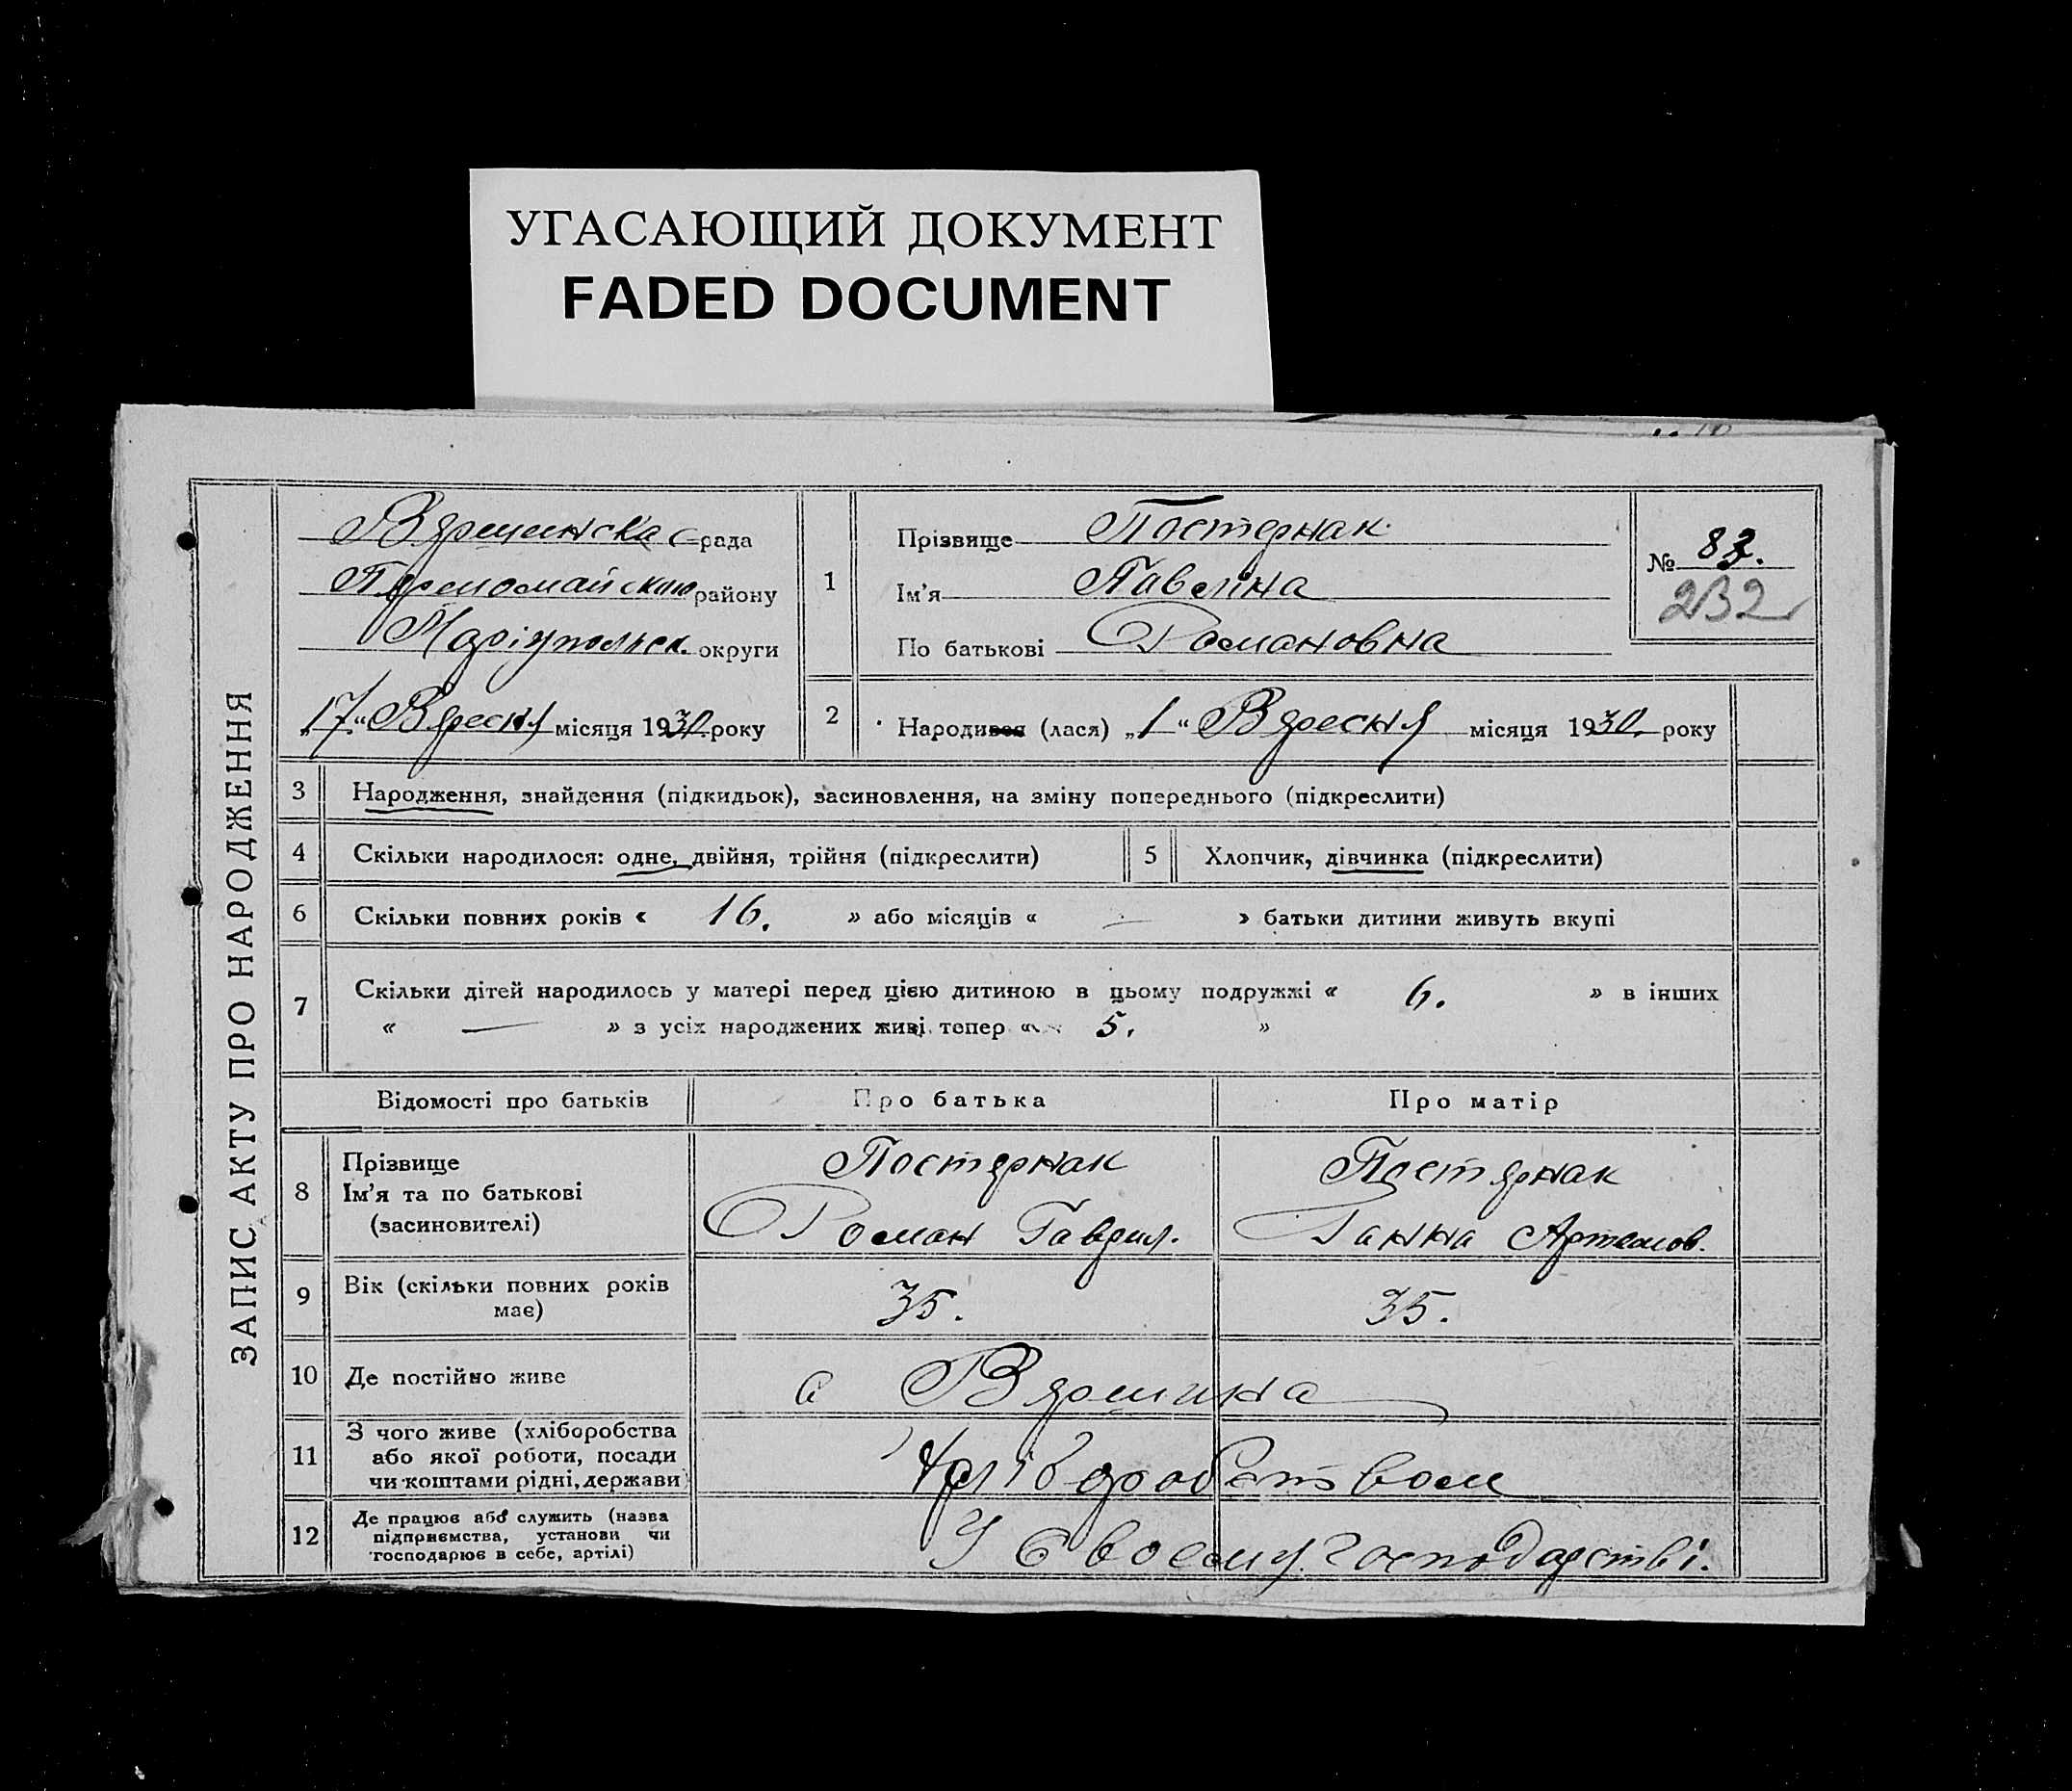 УГАСАЮЩИЙ ДОКУМЕНТ
FADED DOCUMENT
ЗАПИС АКТУ ПРО НАРОДЖЕННЯ
рада
Першомайского району
Маріупольск. округи
„17“ Вересня місяця 1930 року
1
Прізвище Постернак
Ім'я Павлина
По батькові Романовна
№ 83.
232
2 Народився (лася) „1“ Вересня місяця 1930. року
3 Народження, знайдення (підкидьок), засиновлення, на зміну попереднього (підкреслити)
4 Скільки народилося: одне, двійня, трійня (підкреслити) 5 Хлопчик, дівчинка (підкреслити)
6 Скільки повних років « 16. » або місяців « — » батьки дитини живуть вкупі
7 Скільки дітей народилось у матері перед цією дитиною в цьому подружжі « 6. » в інших
« — » з усіх народжених живі тепер « 5. »
Відомості про батьків Про батька Про матір
8 Прізвище Постернак Постернак
Ім'я та по батькові Роман Гаврил. Ганна Артемов.
(засиновителі)
9 Вік (скільки повних років 35. 35.
має)
10 Де постійно живе с Вершина
11 З чого живе (хліборобства
або якої роботи, посади
чи коштами рідні, держави) Хліборобством
12 Де працює або служить (назва
підприємства, установи чи
господарює в себе, артілі) У своєму господарстві.